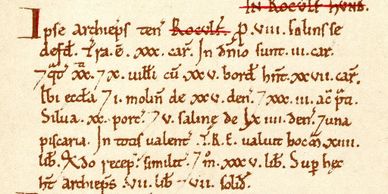 In Roculf Hund.
Ipse archieps ten Roculf. p. viii. solins se
defd. Tra. e. xxx. car. In dnio sunt. iii. car.
7 qt xx. 7 x. uilli cu xxv. bord hnt. xxvii. car.
Ibi eccla 7 i. molin de xxv. den. 7 xxx. iii. ac pa.
Silua. xx. porc. 7 v. saline de lx iiii. den. 7 una
piscaria. In totis ualent. T.R.E. ualuit xiiii.
lib. Qdo recep. similit. 7 m. xxxv. lib. Sup hec
ht archieps vii. lib 7 vii. solid.